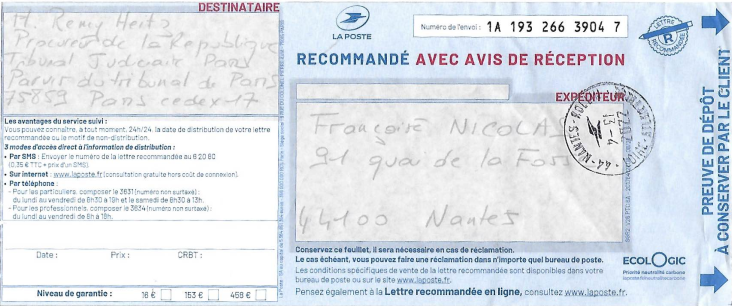 DESTINATAIRE
M. Remy Heitz
Procureur de la République
Tribunal Judiciaire Paris
Parvis du tribunal de Paris
75859 Paris cedex 17
Les avantages du service suivi :
Vous pouvez connaître, à tout moment, 24h/24, la date de distribution de votre lettre
recommandée ou le motif de non-distribution.
3 modes d'accès direct à l'information de distribution :
• Par SMS : Envoyer le numéro de la lettre recommandée au 6 20 80
(0,35 € TTC + prix d'un SMS).
• Sur internet : www.laposte.fr (consultation gratuite hors coût de connexion).
• Par téléphone :
- Pour les particuliers, composer le 3631 (numéro non surtaxé) :
du lundi au vendredi de 8h30 à 19h et le samedi de 8h30 à 13h.
- Pour les professionnels, composer le 3634 (numéro non surtaxé) :
du lundi au vendredi de 8h à 18h.
Date : Prix : CRBT :
Niveau de garantie : 16 € 153 € 458 €
LA POSTE
Numéro de l'envoi : 1A 193 266 3904 7
LETTRE RECOMMANDÉE
R
RECOMMANDÉ AVEC AVIS DE RÉCEPTION
EXPÉDITEUR
Françoise NICOLAS
91 quai de la Fosse
44100 Nantes
44 - NANTES
13-4
Conservez ce feuillet, il sera nécessaire en cas de réclamation.
Le cas échéant, vous pouvez faire une réclamation dans n'importe quel bureau de poste.
Les conditions spécifiques de vente de la lettre recommandée sont disponibles dans votre
bureau de poste ou sur le site www.laposte.fr.
Pensez également à la Lettre recommandée en ligne, consultez www.laposte.fr.
ECOLOGIC
Priorité neutralité carbone
PREUVE DE DÉPÔT
À CONSERVER PAR LE CLIENT